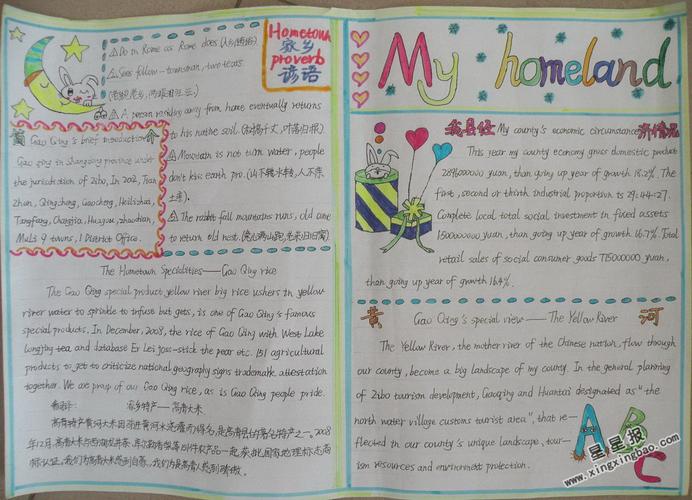 Hometown
家乡
proverb
谚语
① Do in Rome as Rome does (入乡随俗)
② Sees fellow-townsman, two tears
(老乡见老乡,两眼泪汪汪.)
③ A person residing away from home eventually returns
to his native soil. (树高千丈,叶落归根).
④ Mountain is not turn water, people
don't kiss earth pro. (山不转水转,人不亲
土亲).
⑤ The rabbit full mountains runs, old one
to return old nest.
简介
Gao Qing's brief introduction
Gao qing in shangdong province under
the jurisdiction of Zibo, In 202, Tian
zhen, Qingcheng, Gaocheng, Heilizhai,
Tangfang, Changjia, Huagou, zhaodian,
Muli 9 towns, 1 District Office.
The Hometown Specialities —— Gao Qing rice
The Gao Qing special product yellow river big rice ushers in yellow
river water to sprinkle to infuse but gets, is one of Gao Qing's famous
special products. In December, 2008, the rice of Gao Qing with West Lake
longjing tea and database Er Lei joss-stick the pear etc. 151 agricultural
products to get to criticize national geography signs trademark attestation
together. We are proup of our Gao Qing rice, as is Gao Qing people pride.
翻译: 家乡特产——高青大米
高青特产黄河大米因引进黄河水浇灌而得名,是高青县的著名特产之一。2008
年12月,高青大米与西湖龙井茶、库尔勒香梨等151件农产品一起获批国家地理标志商
标认证。我们为高青大米感到自豪,我们为是高青人感到骄傲。
My homeland
我县经济情况
My county's economic circumstance
This year my county economy gross domestic product
2896000000 yuan, than going up year of growth 18.2%. The
first, second or thirth industrial proportion is 29:44:27.
Complete local total social investment in fixed assets
1500000000 yuan, than going up year of growth 16.7%. Total
retail sales of social consumer goods 715000000 yuan,
than going up year of growth 16.4%.
黄 河
Gao Qing's special view —— The Yellow River
The Yellow River, the mother river of the Chinese nation, flow through
our county, become a big landscape of my county. In the general planning
of Zibo tourism development, Gaoqing and Huantai designated as "the
north water village customs tourist area", that re-
flected in our county's unique landscape, tour-
ism resources and environment protection.
ABC
星星报
www.xingxingbao.com